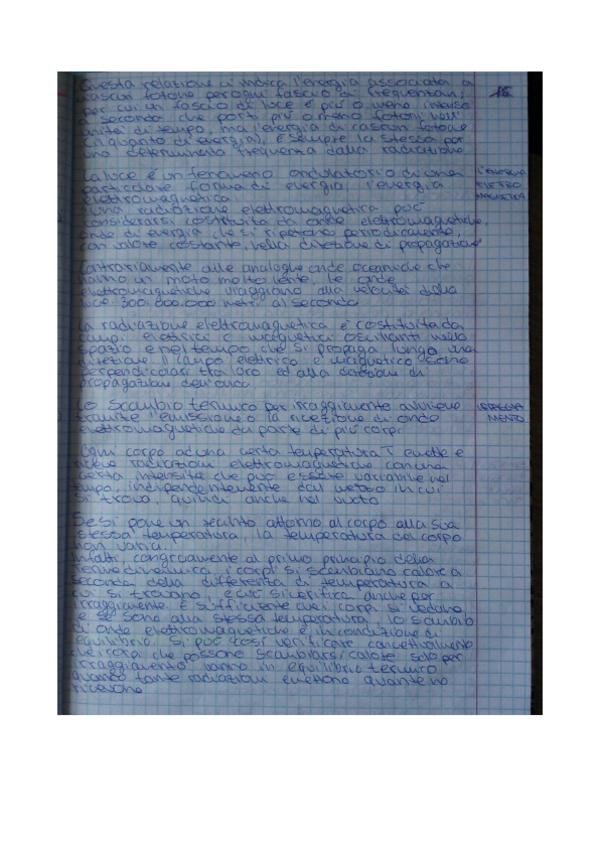 Questa relazione ci indica l'energia associata a
ciascun fotone per ogni fascio di frequenza ν,
15
per cui un fascio di luce è più o meno intenso
a seconda che porti più o meno fotoni nell'
unità di tempo, ma l'energia di ciascun fotone
(quanto di energia), è sempre la stessa per
una determinata frequenza della radiazione.
La luce è un fenomeno ondulatorio di una
L'ENERGIA
particolare forma di energia, l'energia
ELETTRO
elettromagnetica
MAGNETICA
una radiazione elettromagnetica può
considerarsi costituita da onde elettromagnetiche,
onde di energia che si ripetono periodicamente,
con valore costante, nella direzione di propagazione
Contrariamente alle analoghe onde oceaniche che
hanno un moto molto lento, le onde
elettromagnetiche viaggiano alla velocità della
luce: 300.000.000 metri al secondo
La radiazione elettromagnetica è costituita da
campi elettrici e magnetici oscillanti nello
spazio e nel tempo che si propaga lungo una
direzione. Il campo elettrico e magnetico sono
perpendicolari tra loro ed alla direzione di
propagazione dell'onda.
Lo scambio termico per irraggiamento avviene
IRRAGGIA
tramite l'emissione o la ricezione di onde
MENTO
elettromagnetiche da parte di più corpi.
Ogni corpo ad una certa temperatura T emette e
riceve radiazioni elettromagnetiche con una
certa intensità che può essere variabile nel
tempo, indipendentemente dal mezzo in cui
si trova, quindi anche nel vuoto
Se si pone un recinto attorno al corpo alla sua
stessa temperatura, la temperatura del corpo
non varia.
Infatti, congruamente al primo principio della
termodinamica, i corpi si scambiano calore a
seconda della differenza di temperatura a
cui si trovano, e ciò si verifica anche per
irraggiamento. È sufficiente che i corpi si vedano,
e se sono alla stessa temperatura, lo scambio
di onde elettromagnetiche è in condizione di
equilibrio. Si può così verificare concettualmente
che i corpi che possono scambiarsi calore solo per
irraggiamento vanno in equilibrio termico
quando tante radiazioni emettono quante ne
ricevono